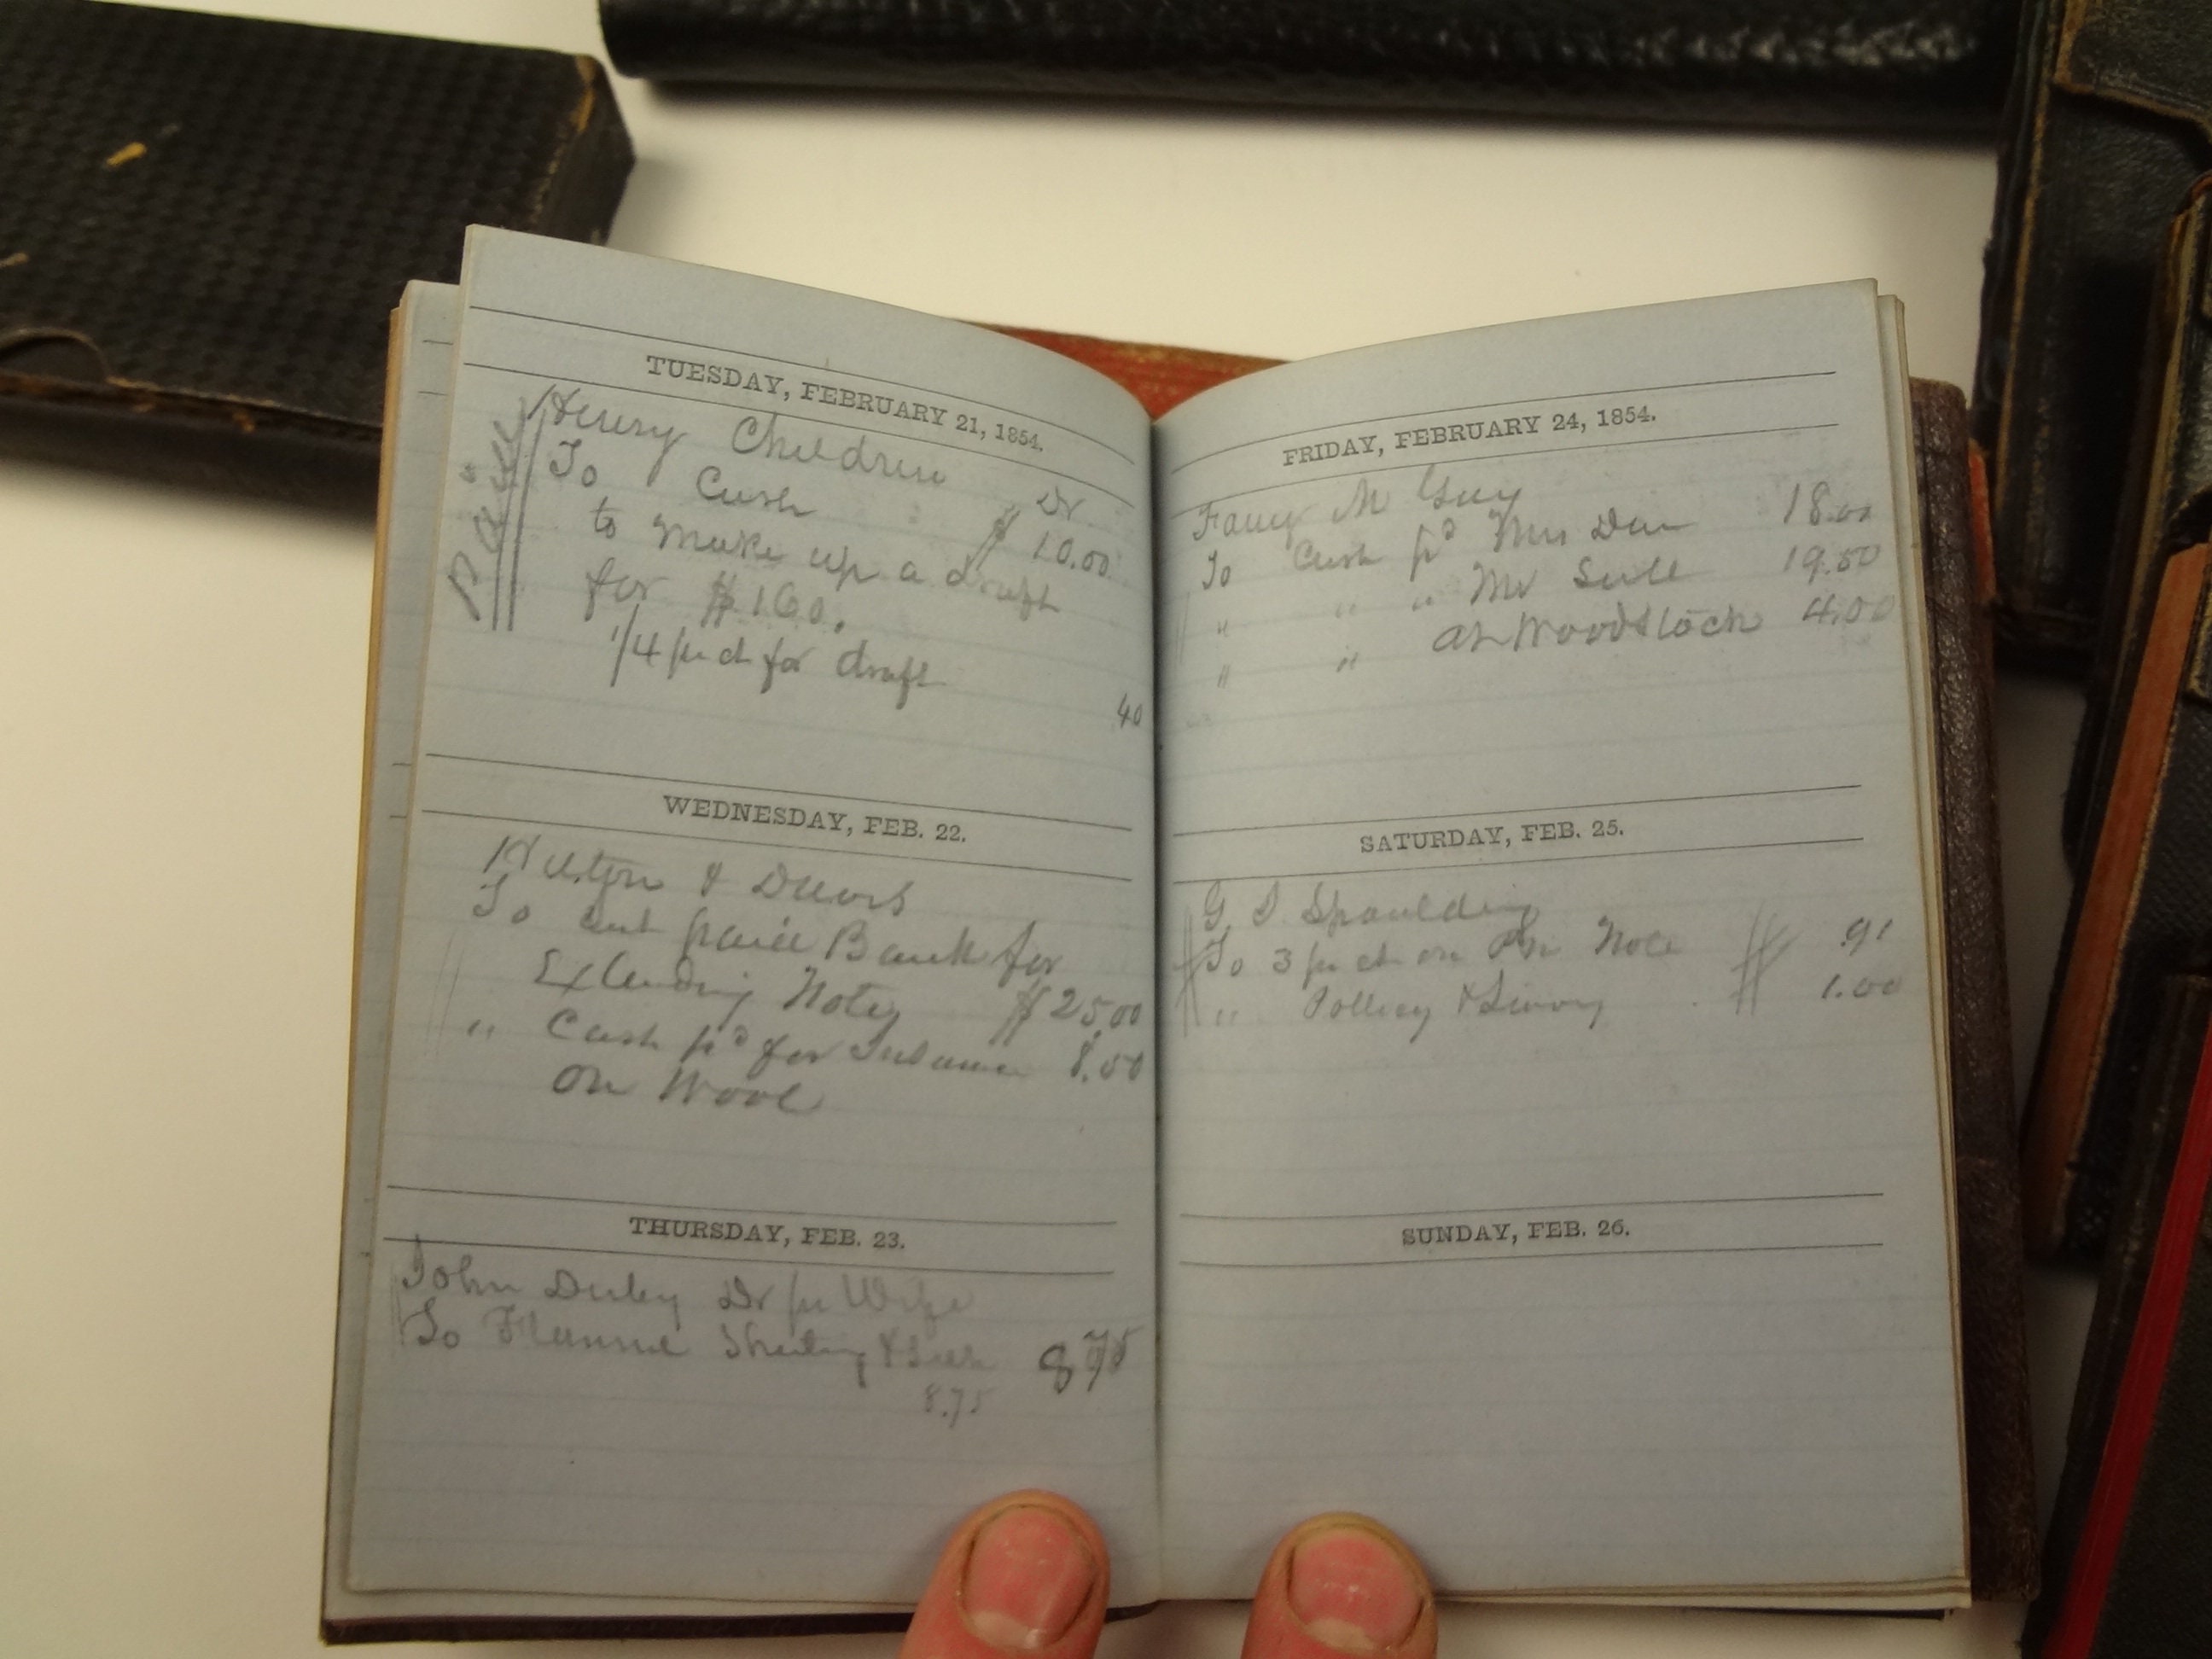 TUESDAY, FEBRUARY 21, 1854.
Paid
Henry Children Dr
To Cash $10.00
to make up a draft
for $160.
1/4 pr ct for draft
40
WEDNESDAY, FEB. 22.
& Davis
To paid Bank for
Extending Notes $25.00
" Cash pd for Insurance 8.50
on Wool
THURSDAY, FEB. 23.
John Dr pr Wife
To Flannel Sheeting & 875
8.75
FRIDAY, FEBRUARY 24, 1854.
M Guy
To Cash pd Mrs 18.00
" " " Mr 19.50
" " at Woodstock 4.00
SATURDAY, FEB. 25.
G. Spaulding
To 3 pr ct on Note .91
" Pollicy & 1.00
SUNDAY, FEB. 26.